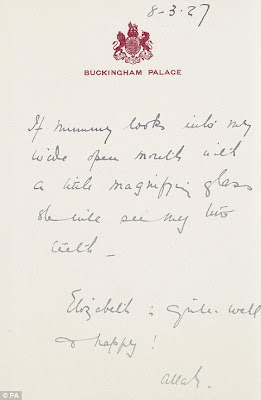 8-3-27
BUCKINGHAM PALACE
If mummy looks into my
wide open mouth with
a little magnifying glass
she will see my two
teeth -
Elizabeth is quite well
& happy!
Allah.
© PA